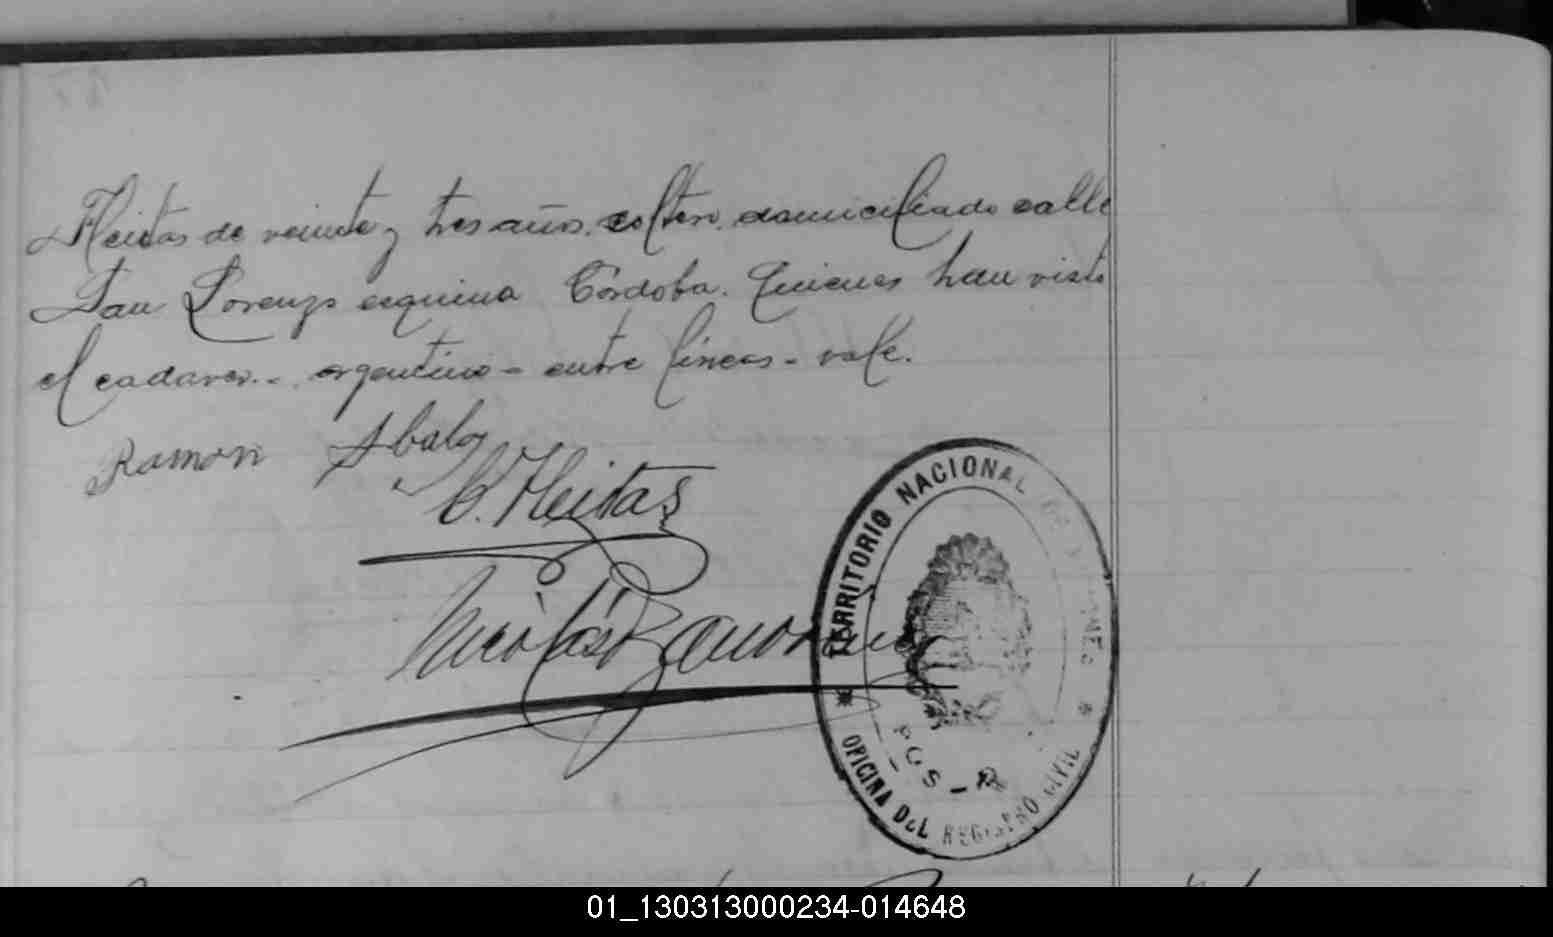 Fleitas de veinte y tres años, soltero, domiciliado calle
San Lorenzo esquina Córdoba. Quienes han visto
el cadaver.- argentino - entre lineas - vale.
Ramon Abalos
C. Fleitas
Nicolás
TERRITORIO NACIONAL DE MISIONES
* *
POS
OFICINA DEL REGISTRO CIVIL
01_130313000234-014648